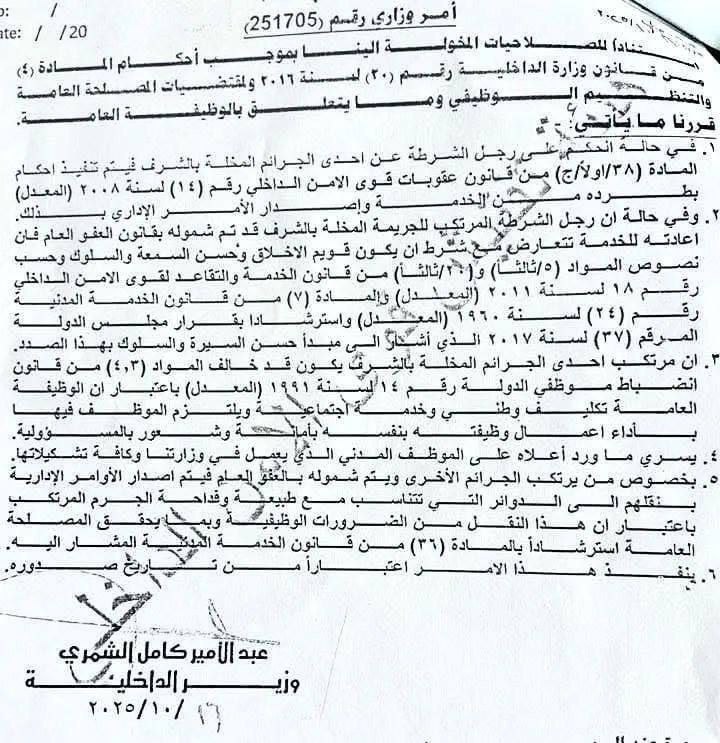 o: /
ate: / /20
أمر وزاري رقم (251705)
استناداً للصلاحيات المخولة الينا بموجب أحكام المادة (٤)
من قانون وزارة الداخلية رقم (٢٠) لسنة ٢٠١٦ ولمقتضيات المصلحة العامة
والتنظيم الوظيفي وما يتعلق بالوظيفة العامة.
قررنا ما يأتي:
١. في حالة الحكم على رجل الشرطة عن احدى الجرائم المخلة بالشرف فيتم تنفيذ احكام
المادة (٣٨/اولاً/ج) من قانون عقوبات قوى الامن الداخلي رقم (١٤) لسنة ٢٠٠٨ (المعدل)
بطرده من الخدمة وإصدار الأمر الإداري بذلك.
٢. وفي حالة ان رجل الشرطة المرتكب للجريمة المخلة بالشرف قد تم شموله بقانون العفو العام فان
اعادته للخدمة تتعارض مع شرط ان يكون قويم الاخلاق وحسن السمعة والسلوك وحسب
نصوص المواد (٥/ثالثاً) و(٢٠/ثالثاً) من قانون الخدمة والتقاعد لقوى الامن الداخلي
رقم ١٨ لسنة ٢٠١١ (المعدل) والمادة (٧) من قانون الخدمة المدنية
رقم (٢٤) لسنة ١٩٦٠ (المعدل) واسترشادا بقرار مجلس الدولة
المرقم (٣٧) لسنة ٢٠١٧ الذي أشار الى مبدأ حسن السيرة والسلوك بهذا الصدد.
٣. ان مرتكب احدى الجرائم المخلة بالشرف يكون قد خالف المواد (٤,٣) من قانون
انضباط موظفي الدولة رقم ١٤ لسنة ١٩٩١ (المعدل) باعتبار ان الوظيفة
العامة تكليف وطني وخدمة اجتماعية ويلتزم الموظف فيها
بأداء اعمال وظيفته بنفسه بأمانة وشعور بالمسؤولية.
٤. يسري ما ورد أعلاه على الموظف المدني الذي يعمل في وزارتنا وكافة تشكيلاتها.
٥. بخصوص من يرتكب الجرائم الأخرى ويتم شموله بالعفو العام فيتم اصدار الأوامر الإدارية
بنقلهم الى الدوائر التي تتناسب مع طبيعة وفداحة الجرم المرتكب
باعتبار ان هذا النقل من الضرورات الوظيفية وبما يحقق المصلحة
العامة استرشاداً بالمادة (٣٦) من قانون الخدمة المدنية المشار اليه.
٦. ينفذ هذا الامر اعتباراً من تاريخ صدوره.
عبد الأمير كامل الشمري
وزير الداخلية
١٦/١٠/٢٠٢٥